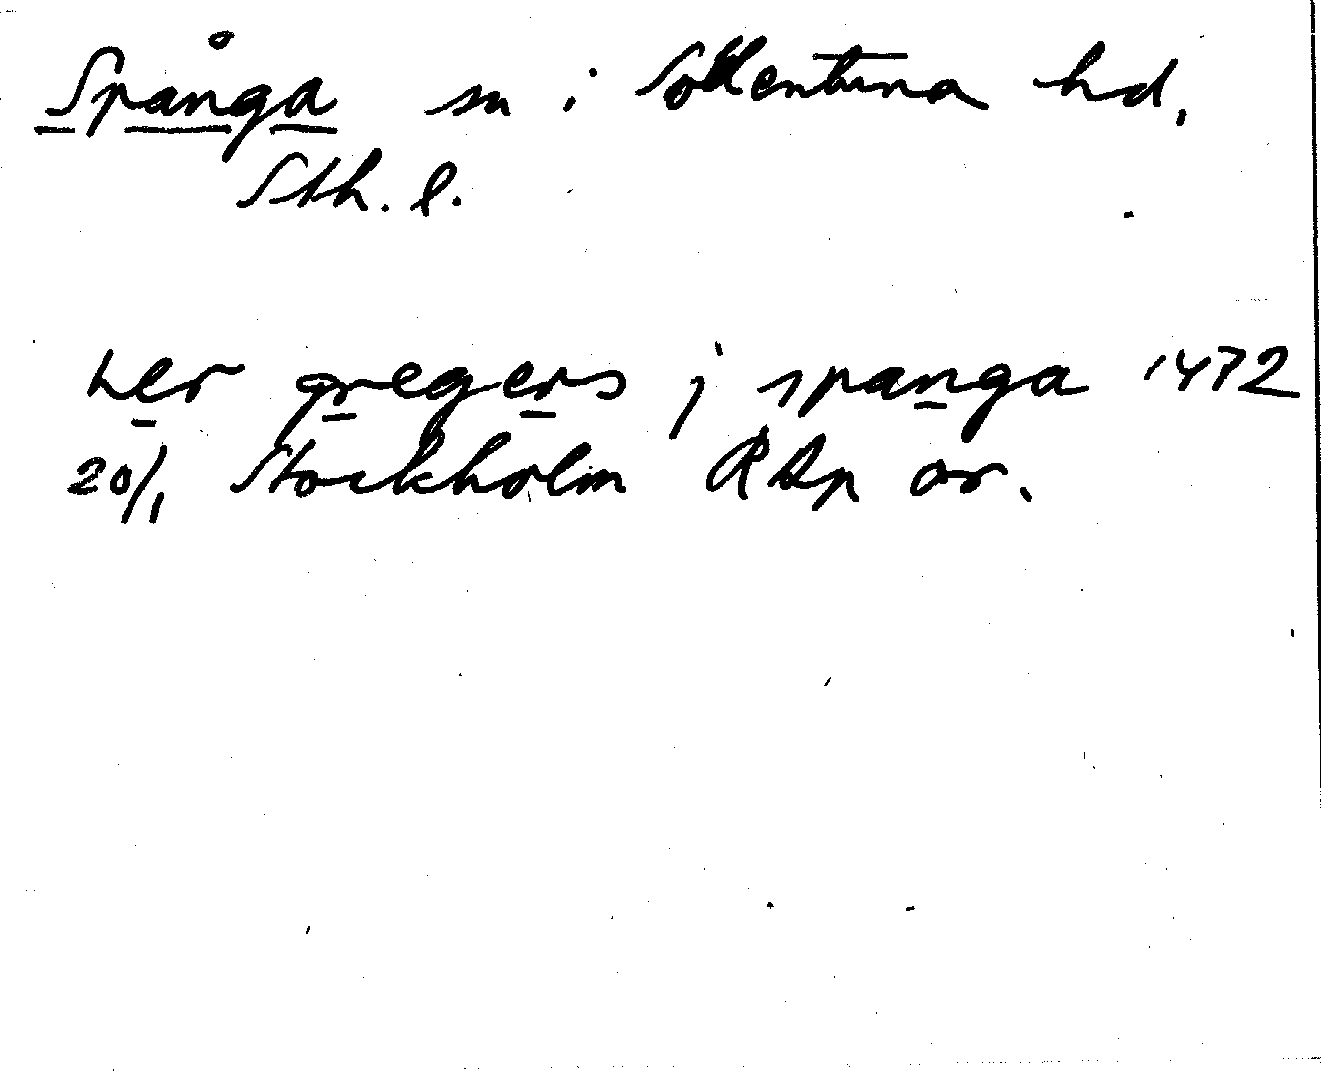 Spånga sn i Sollentuna hd.
Sth. l.
her gregers j spanga 1472
20/1 Stockholm RAp or.